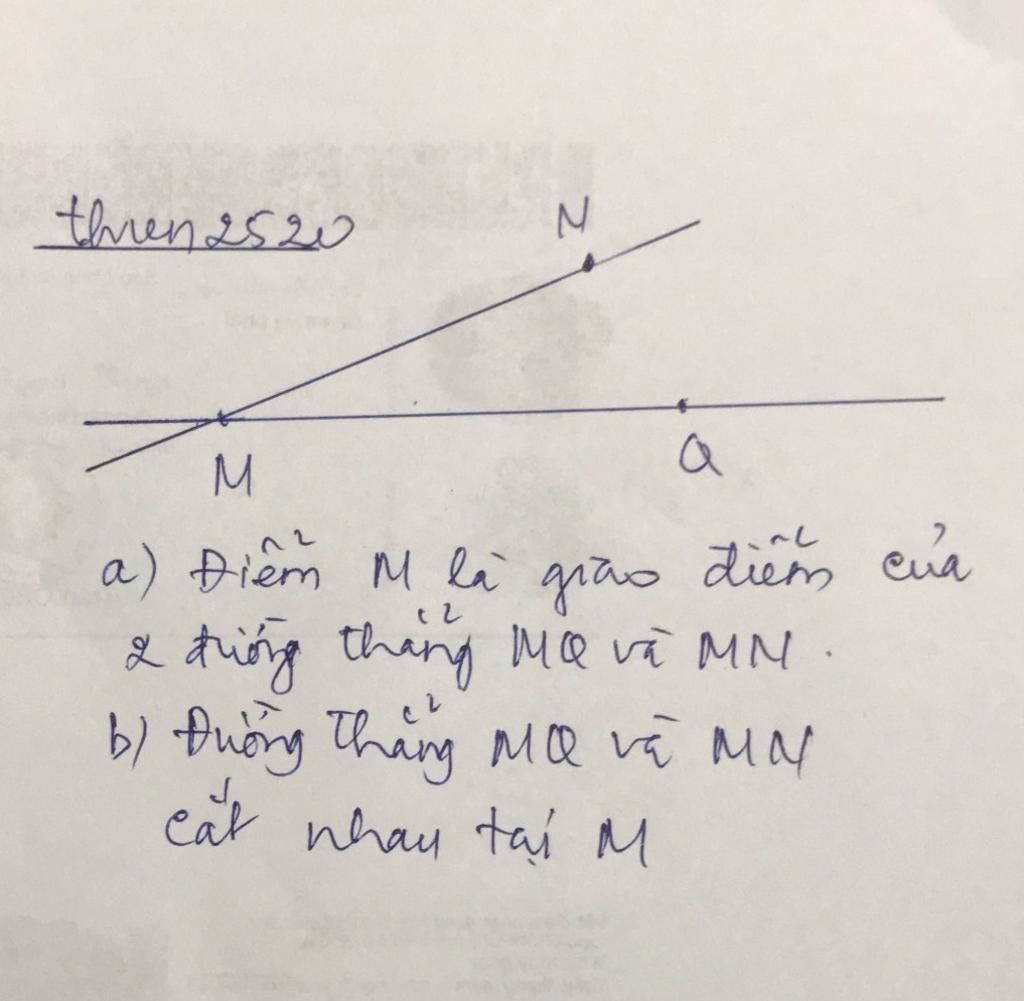 thien2520
N
M
Q
a) Điểm M là giao điểm của
2 đường thẳng MQ và MN.
b) Đường thẳng MQ và MN
cắt nhau tại M